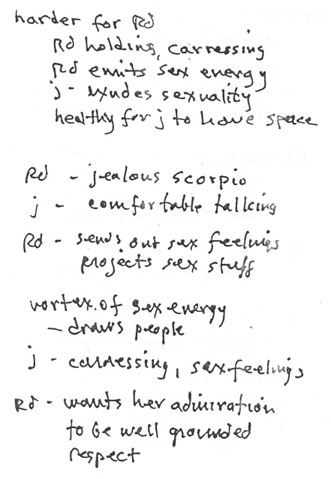 harder for Rd
Rd holding, carressing
Rd emits sex energy
j - exudes sexuality
healthy for j to have space
Rd - jealous scorpio
j - comfortable talking
Rd - sends out sex feelings
projects sex stuff
vortex of sex energy
- draws people
j - carressing, sex feelings
Rd - wants her admiration
to be well grounded
respect